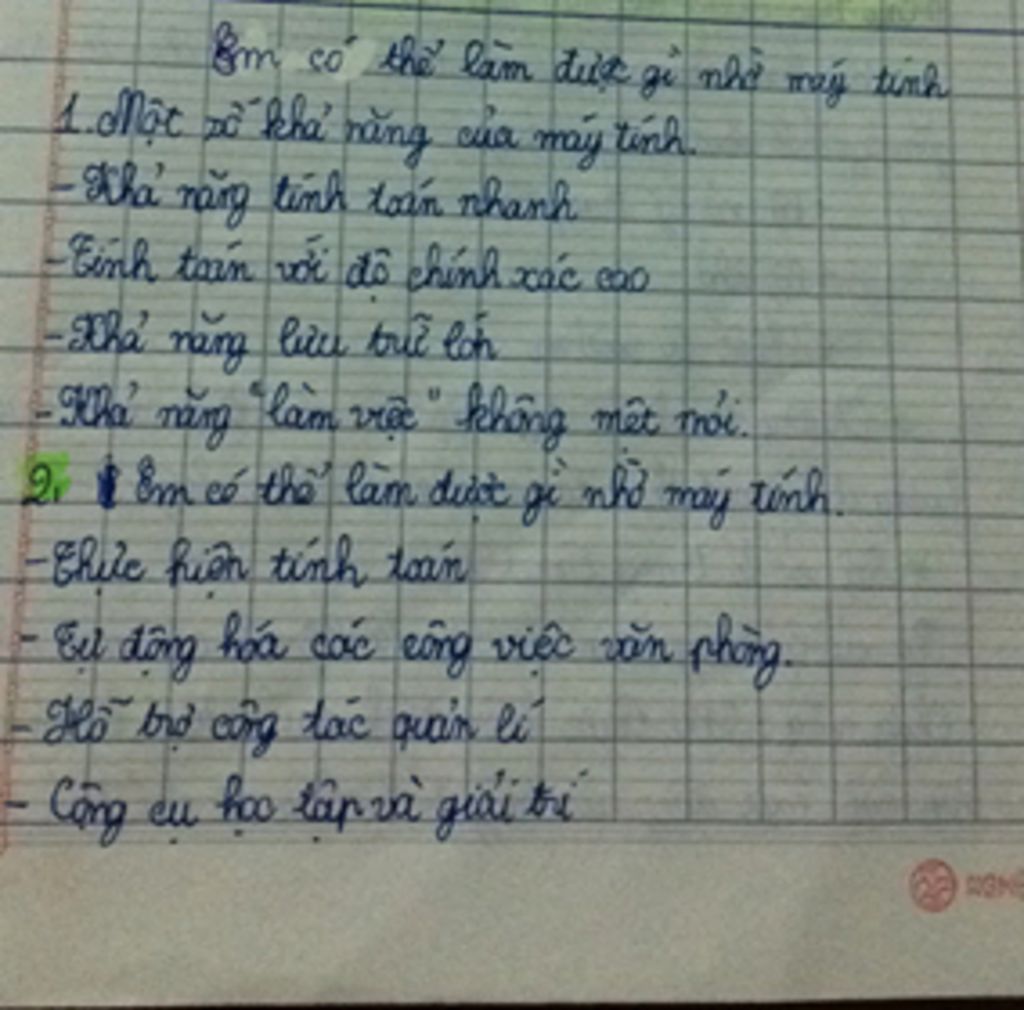 Em có thể làm được gì nhờ máy tính
1. Một số khả năng của máy tính.
- Khả năng tính toán nhanh
- Tính toán với độ chính xác cao
- Khả năng lưu trữ lớn
- Khả năng "làm việc" không mệt mỏi.
2. Em có thể làm được gì nhờ máy tính.
- Thực hiện tính toán
- Tự động hóa các công việc văn phòng.
- Hỗ trợ công tác quản lí
- Công cụ học tập và giải trí